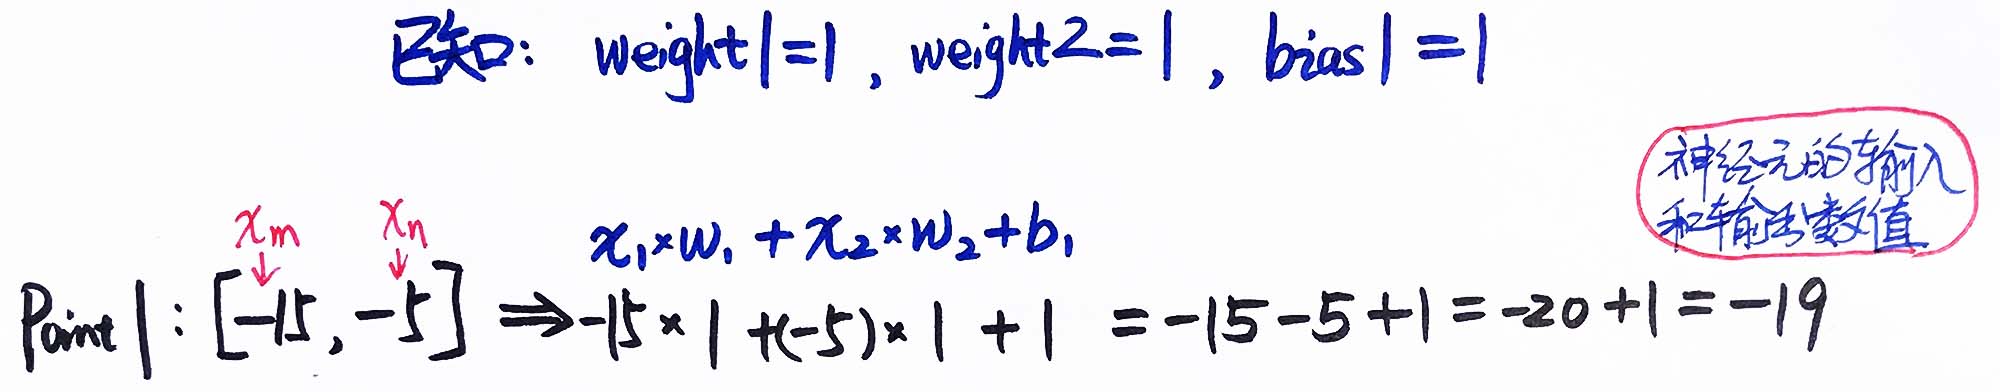 已知: weight1=1, weight2=1, bias1=1
神经元的输入
和输出数值
xm xn
x₁×w₁+x₂×w₂+b₁
Point1: [-15, -5] ⇒ -15×1+(-5)×1+1 = -15-5+1 = -20+1 = -19